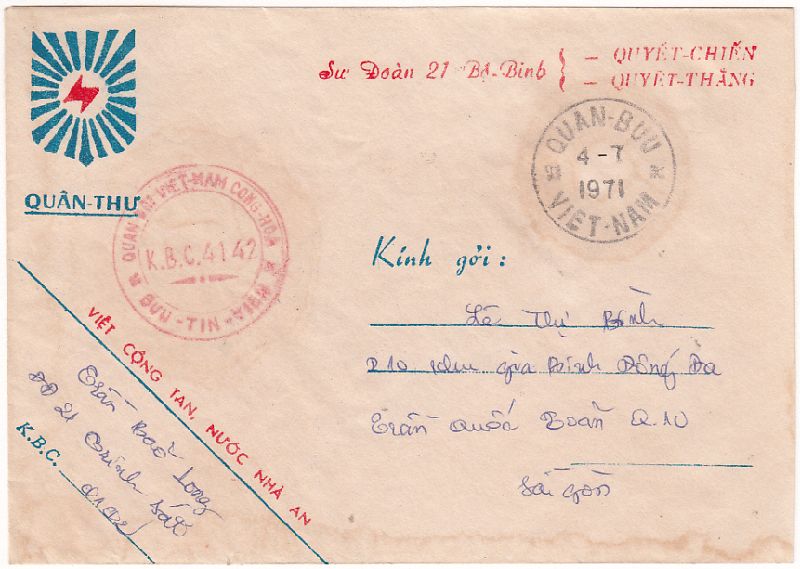 Sư Đoàn 21 Bộ-Binh { – QUYẾT-CHIẾN
– QUYẾT-THẮNG
QUÂN-THƯ
QUÂN-BƯU
4-7
1971
VIỆT-NAM
QUÂN ĐỘI VIỆT-NAM CỘNG-HÒA
K.B.C.4142
BƯU-TÍN-VIÊN
Kính gởi :
Lê Thị Bình
210 khu gia Binh Đống Đa
Trần Quốc Toản Q.10
Sài gòn
VIỆT CỘNG TAN, NƯỚC NHÀ AN
Trần Long
ĐĐ 21 Trinh Sát
K.B.C.